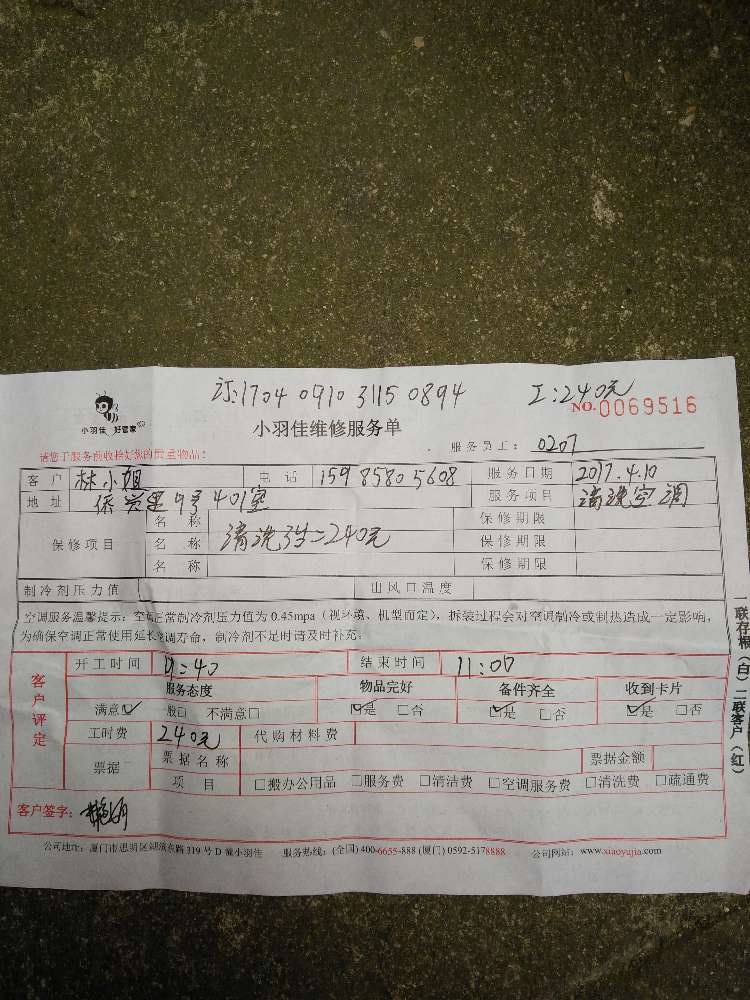 订:1704 0910 3115 0894 工:240元
小羽佳 好管家
NO.0069516
小羽佳维修服务单
请您于服务前收拾好您的贵重物品! 服务员工: 0207
客户 林小姐 电话 15985805608 服务日期 2017.4.10
地址 9号401室 服务项目 清洗空调
名称 保修期限
保修项目 名称 清洗 240元 保修期限
名称 保修期限
制冷剂压力值 出风口温度
空调服务温馨提示:空调正常制冷剂压力值为0.45mpa(视环境、机型而定),拆装过程会对空调制冷或制热造成一定影响,
为确保空调正常使用延长空调寿命,制冷剂不足时请及时补充。
客户评定
开工时间 :40 结束时间 11:00
服务态度 物品完好 备件齐全 收到卡片
满意☑ 般□ 不满意□ ☑是 □否 ☑是 □否 ☑是 □否
工时费 240元 代购材料费
票据 票据名称 票据金额
项目 □搬办公用品 □服务费 □清洁费 □空调服务费 □清洗费 □疏通费
客户签字:
公司地址:厦门市思明区湖滨东路319号D幢小羽佳 服务热线:(全国)400-6655-888 (厦门)0592-5178888 公司网站:www.xiaoyujia.com
一联存根(白)二联客户(红)